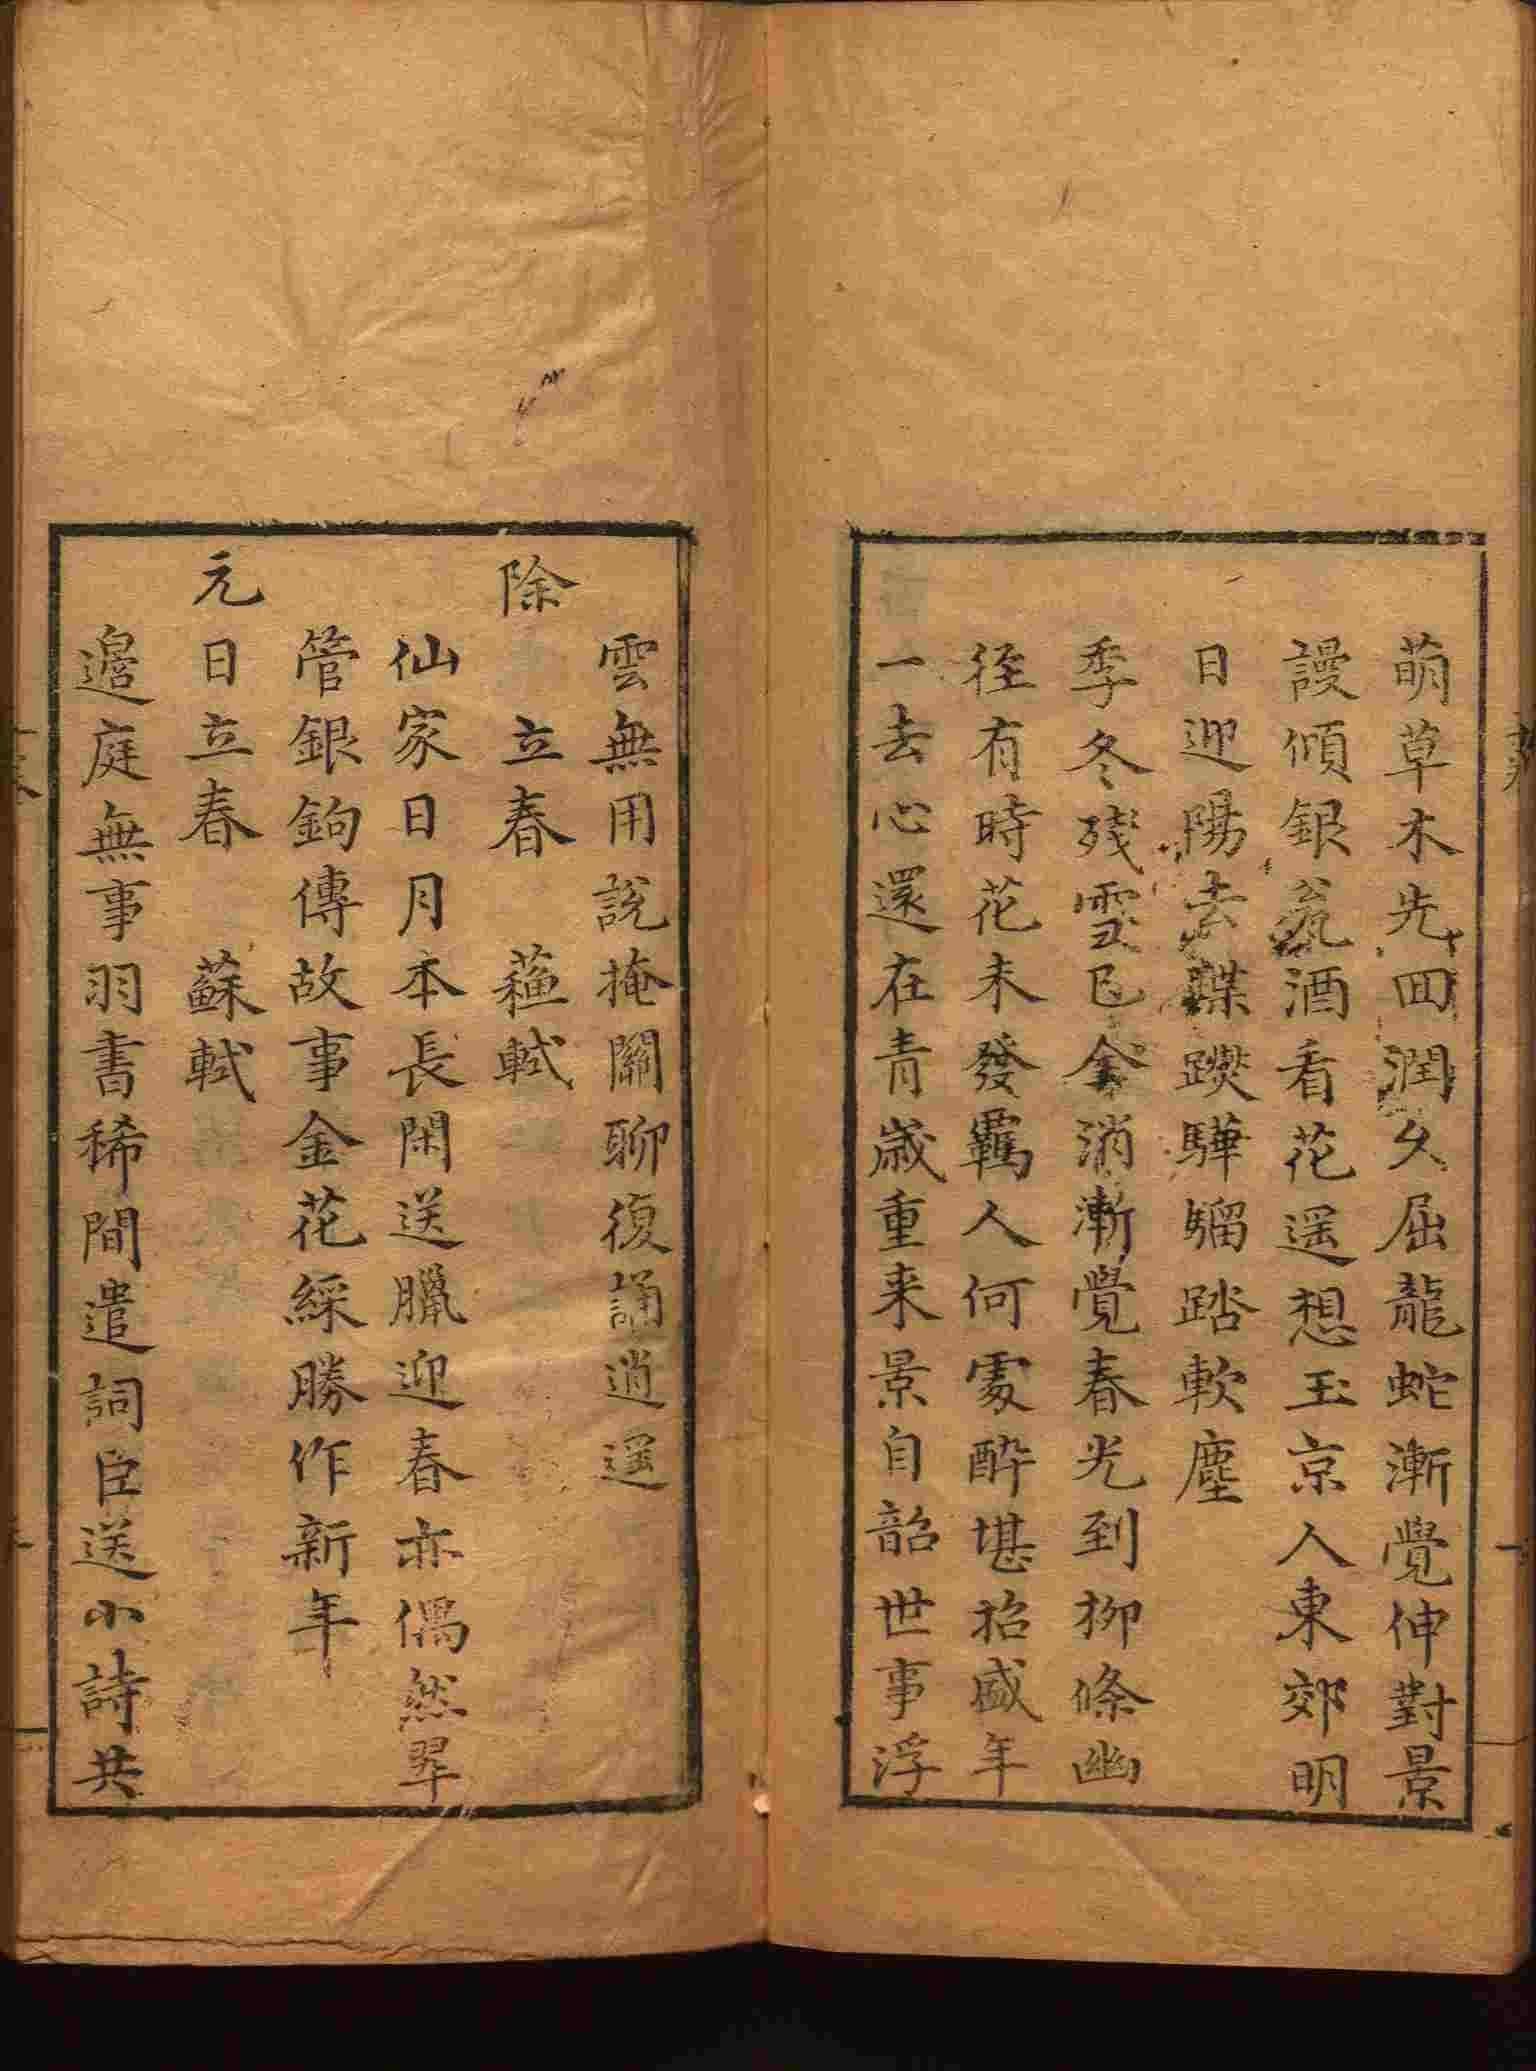 萌草木先囬潤久屈龍蛇漸覺伸對景
謾傾銀瓮酒看花遥想玉京人東郊明
日迎陽去蹀躞驊騮踏軟塵
季冬殘雪已全消漸覺春光到柳條幽
徑有時花未發羈人何處醉堪招盛年
一去心還在青歲重来景自韶世事浮
雲無用說掩關聊復誦逍遥
除　立春　蘓軾
仙家日月本長閑送臘迎春亦偶然翠
管銀鉤傳故事金花綵勝作新年
元日立春　蘇軾
邉庭無事羽書稀閒遣詞臣送小詩共